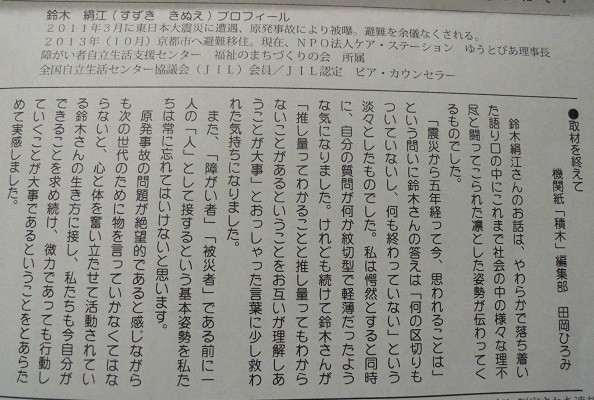 鈴木　絹江(すずき　きぬえ)プロフィール
２０１１年３月に東日本大震災に遭遇、原発事故により被曝。避難を余儀なくされる。
２０１３年(１０月)京都市へ避難移住。現在、ＮＰＯ法人ケア・ステーション　ゆうとぴあ理事長
障がい者自立生活支援センター　福祉のまちづくりの会　所属
全国自立生活センター協議会(ＪＩＬ)会員／ＪＩＬ認定　ピア・カウンセラー
●取材を終えて
機関紙「積木」編集部　田岡ひろみ
鈴木絹江さんのお話は、やわらかで落ち着い
た語り口の中にこれまで社会の中の様々な理不
尽と闘ってこられた凛とした姿勢が伝わってく
るものでした。
「震災から五年経って今、思われることは」
という問いに鈴木さんの答えは「何の区切りも
ついていないし、何も終わっていない」という
淡々としたものでした。私は愕然とすると同時
に、自分の質問が何か紋切型で軽薄だったよう
な気になりました。けれども続けて鈴木さんが
「推し量ってわかることと推し量ってもわから
ないことがあるということをお互いが理解しあ
うことが大事」とおっしゃった言葉に少し救わ
れた気持ちになりました。
また、「障がい者」「被災者」である前に一
人の「人」として接するという基本姿勢を私た
ちは常に忘れてはいけないと思います。
原発事故の問題が絶望的であると感じながら
も次の世代のために物を言っていかなくてはな
らないと、心と体を奮い立たせて活動されてい
る鈴木さんの生き方に接し、私たちも今自分が
できることを求め続け、微力であっても行動し
ていくことが大事であるということをとあらた
めて実感しました。